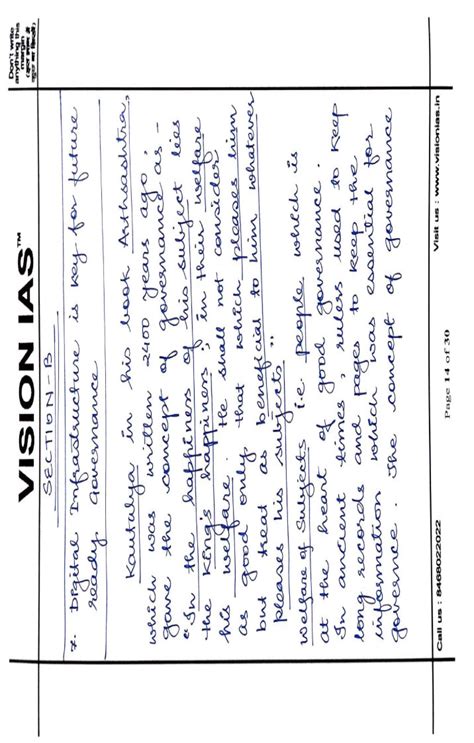 Don't write
anything this
margin
VISION IAS™
SECTION-B
7. Digital Infrastructure is key for future
ready governance
Kautalya in his book Arthsashtra,
which was written 2400 years ago,
gave the concept of governance as -
"In the happiness of his subject lees
the King's happiness; in their welfare
his welfare. He shall not consider
as good only that which pleases him
but treat as beneficial to him whatever
pleases his subjects"
Welfare of Subjects i.e. people which is
at the heart of good governance.
In ancient times, rulers used to keep
long records and pages to keep the
information which was essential for
governce. The concept of governance
Call us : 8468022022
Page 14 of 30
Visit us : www.visionias.in